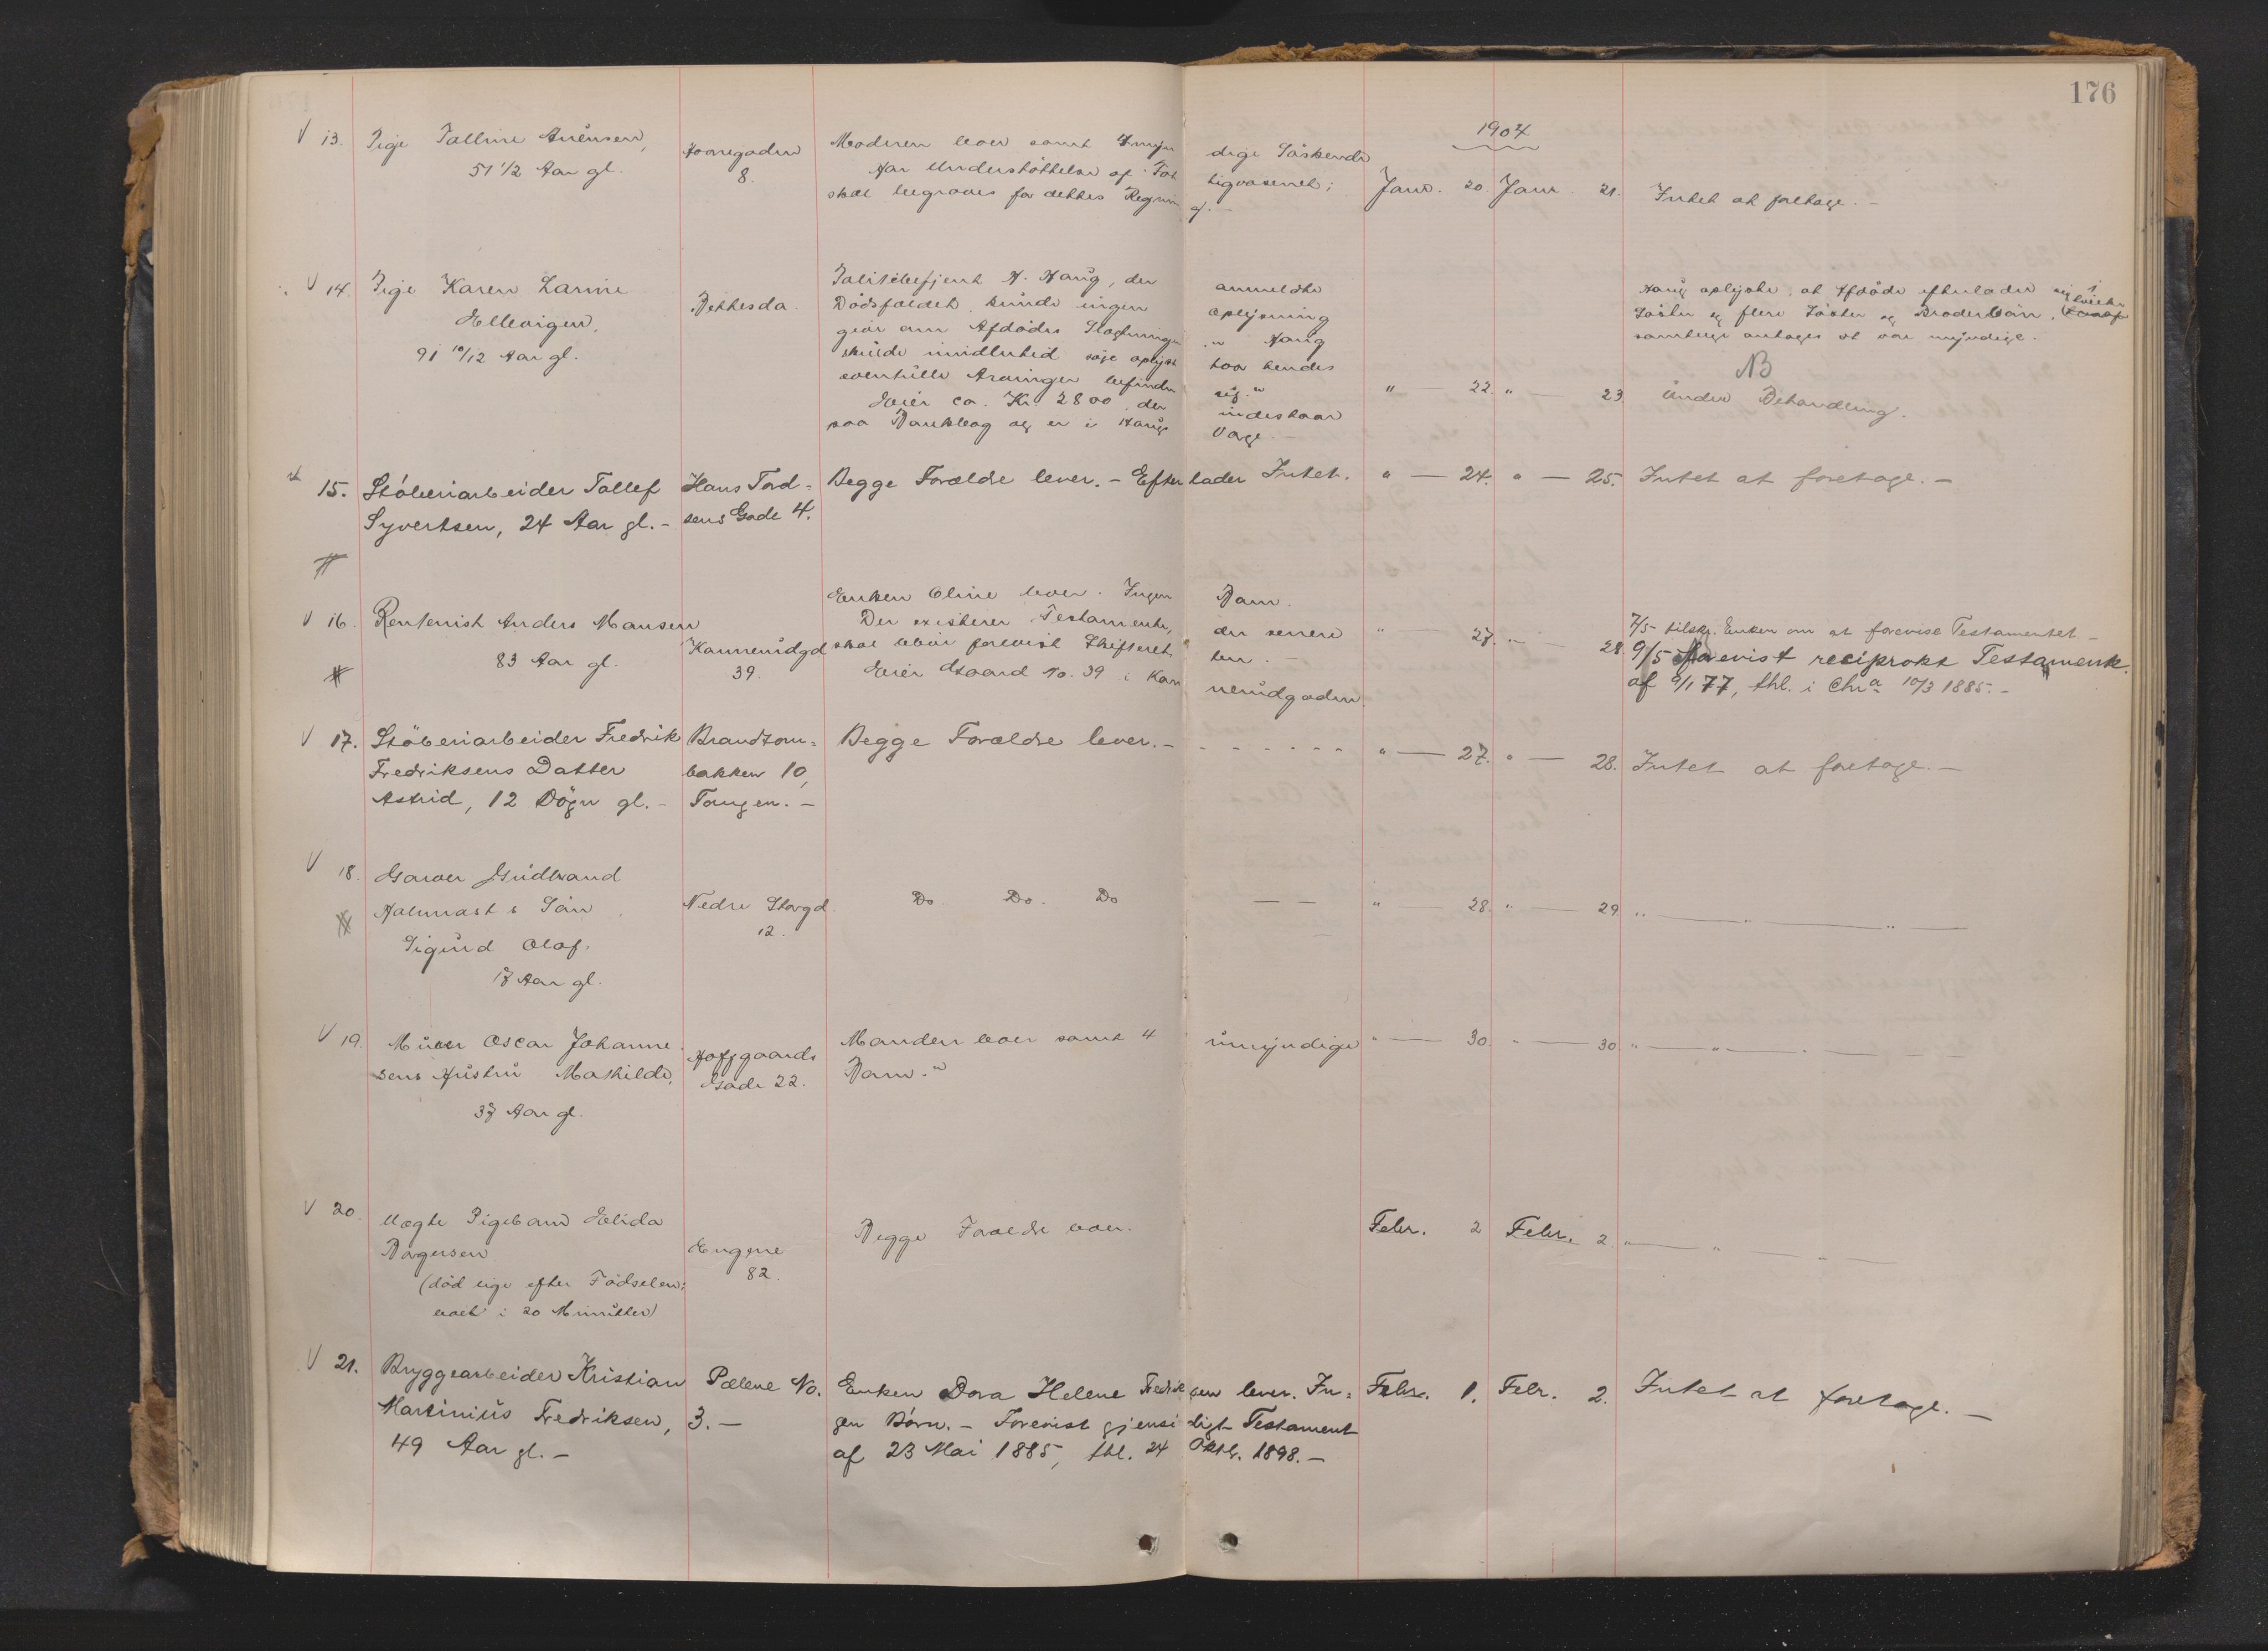 176
1904
V 13. Pige Talline Aurensen, 51 1/2 Aar gl.
Hoanegaden 8.
Moderen lever samt 4 myndige Söskende
Har Understöttelse af Fattigvæsenet;
skal begraves for dettes Regning.
Janr. 20. Janr. 21. Intet at foretage. -
V 14. Pige Karen Larine
Ellevigen,
91 10/12 Aar gl.
Bethesda.
Politibetjent H. Haug, der anmeldte
Dödsfaldet, kunde ingen oplysning
give om Afdödes Slægtninge. Haug
skulde imidlertid söge oplyst hvor hendes
eventuelle Arvinger befinder sig.
Eier ca. Kr. 2800, der indestaar
paa Bankbog og er i Haugs Varge. -
" — 22. " — 23
Haug oplyste, at Afdöde efterlader sig 1
Söster og flere Söster og Broderbörn,
samtlige antages at være myndige.
NB
Under Behandling.
15. Stóberiarbeider Tollef
Syvertsen, 24 Aar gl. -
Hans Tord=
sens Gade 4.
Begge Forældre lever. - Efterlader Intet.
" — 24. " — 25. Intet at foretage. -
V 16. Rentenist Anders Hansen
83 Aar gl.
Kannemdgd
39.
Enken Oline lever. Ingen Barn.
Der existerer Testamente, der senere
skal blive forevist Skifteretten. -
Eier Gaard No. 39 i Kannemdgaden.
" — 27. " — 28.
7/5 tilskr. Enken om at forevise Testamentet -
9/5 Forevist reciprokt Testament
af 9/1 77, thl. i Chra 10/3 1885. -
V 17. Stöberiarbeider Fredrik
Fredriksens Datter
Astrid, 12 Dögn gl. -
Brandtom=
bakken 10,
Tangen. -
Begge Forældre lever. - - - - - - -
" — 27. " — 28. Intet at foretage. -
V 18. Garver Gudbrand
Halmrasts Sön
Sigurd Olaf.
17 Aar gl.
Nedre Storgd.
12.
Do. Do. Do
" — 28. " — 29. " — " — " —
V 19. Murer Oscar Johanne
sens Hustru Mathilde,
37 Aar gl.
Hoffgaards
Gade 22.
Manden lever samt 4 umyndige
Barn.
" — 30. " — 30. " — " —
V 20. Uægte Pigebarn Elida
Borgersen
(död lige efter Födselen;
levet i 20 Minutter)
Engene
82.
Begge Forældre lever.
Febr. 2 Febr. 2. " — " — " —
V 21. Bryggearbeider Kristian
Martinius Fredriksen,
49 Aar gl. -
Pælene No.
3. -
Enken Dora Helene Fredriksen lever. In=
gen Börn. - Forevist gjensidigt Testament
af 23 Mai 1885, thl. 24 Oktbr. 1898. -
Febr. 1. Febr. 2. Intet at foretage. -